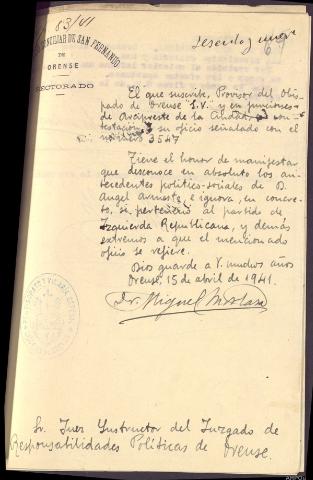 83/41
Sesenta y nueve
69
CONCILIAR DE SAN FERNANDO
DE
ORENSE
RECTORADO
El que suscribe, Provisor del Obis-
pado de Orense "S.V." y en funciones
de Arcipreste de la Ciudad, con-
testación a su oficio señalado con el
número 3547
Tiene el honor de manifestar
que desconoce en absoluto los an-
tecedentes político-sociales de D.
Angel Armesto, e ignora, en concre-
to, si perteneció al partido de
Izquierda Republicana, y demás
extremos a que el mencionado
oficio se refiere.
Dios guarde a V. muchos años
Orense, 15 de abril de 1941.
Dr. Miguel
Sr. Juez Instructor del Juzgado de
Responsabilidades Políticas de Orense.